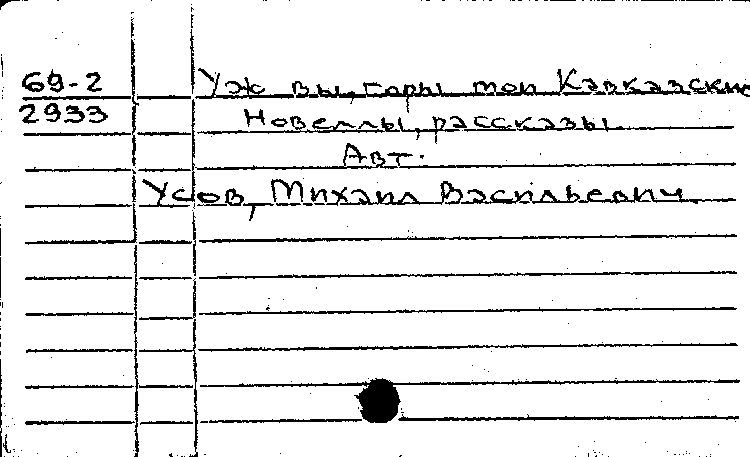 69-2 Уж вы, горы мои Кавказские
2933 Новеллы, рассказы
Авт.
Усов, Михаил Васильевич